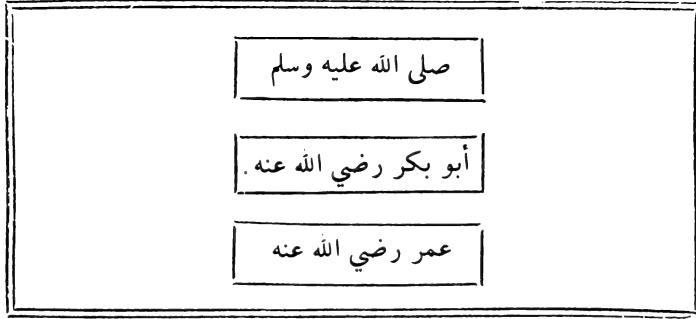 صلى الله عليه وسلم
أبو بكر رضي الله عنه.
عمر رضي الله عنه